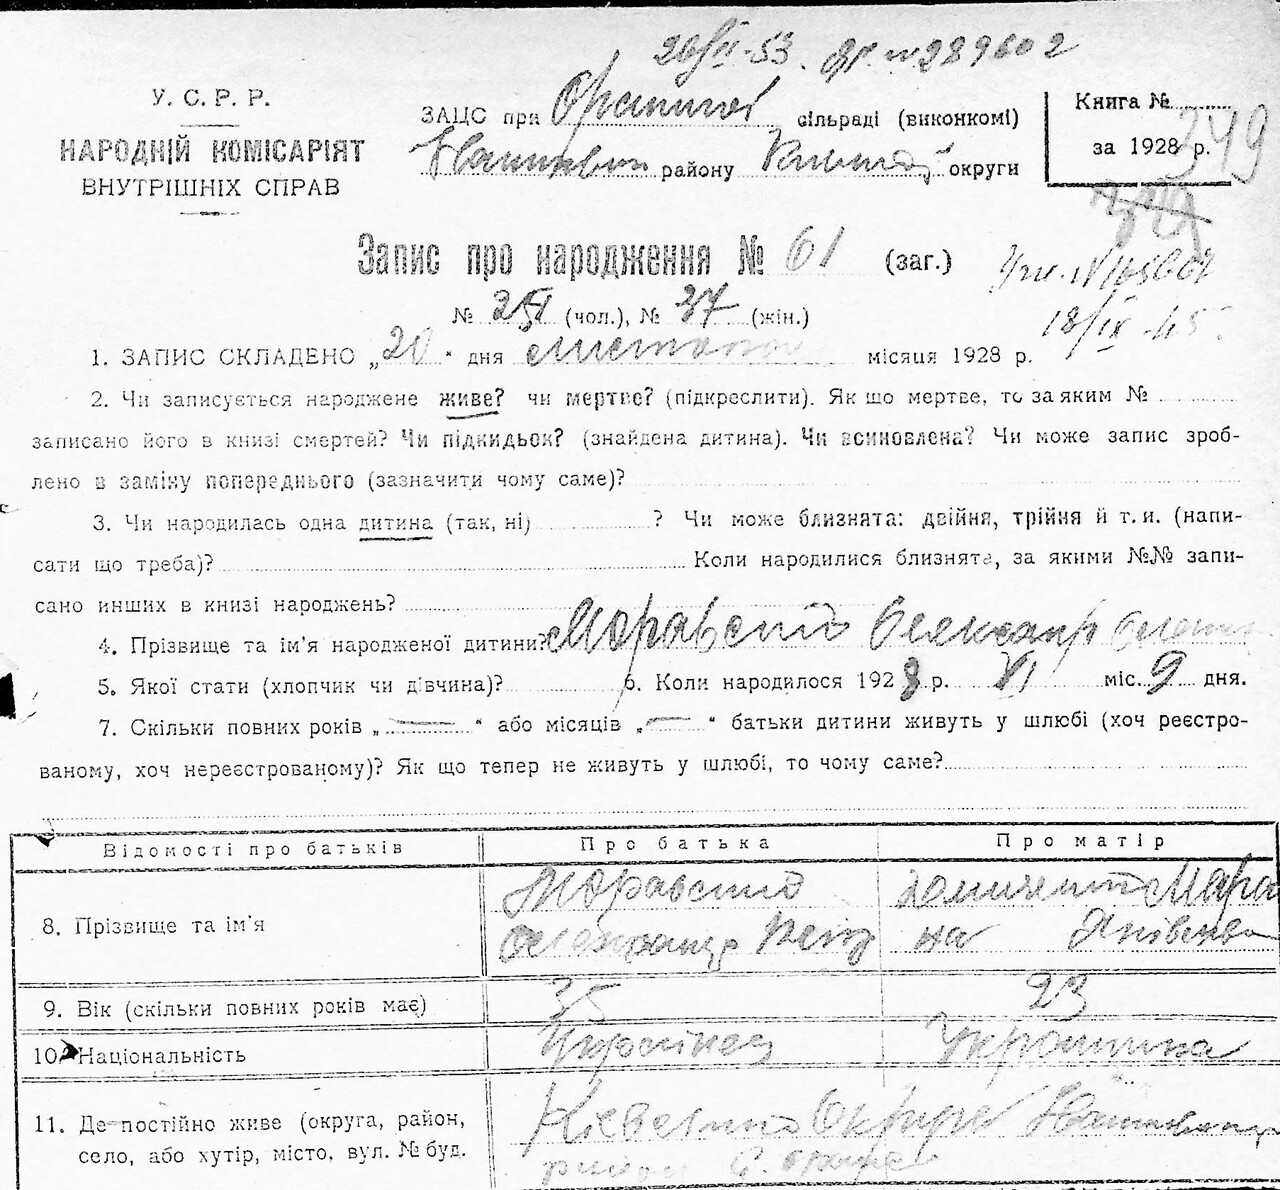 20/II-53. № 289602
У. С. Р. Р.
НАРОДНІЙ КОМІСАРІЯТ
ВНУТРІШНІХ СПРАВ
ЗАЦС при сільраді (виконкомі)
району округи
Книга №
за 1928 р.
349
Запис про народження № 61 (заг.)
18/IX-45
№ (чол.), № 37 (жін.)
1. ЗАПИС СКЛАДЕНО „20“ дня листопада місяця 1928 р.
2. Чи записується народжене живе? чи мертве? (підкреслити). Як що мертве, то за яким №
записано його в книзі смертей? Чи підкидьок? (знайдена дитина). Чи всиновлена? Чи може запис зроб-
лено в заміну попереднього (зазначити чому саме)?
3. Чи народилась одна дитина (так, ні) ? Чи може близнята: двійня, трійня й т. и. (напи-
сати що треба)? Коли народилися близнята, за якими №№ запи-
сано инших в книзі народжень?
4. Прізвище та ім'я народженої дитини? Моравский Олександр
5. Якої стати (хлопчик чи дівчина)? 6. Коли народилося 1928 р. XI міс. 9 дня.
7. Скільки повних років „—“ або місяців „—“ батьки дитини живуть у шлюбі (хоч реєстро-
ваному, хоч нереєстрованому)? Як що тепер не живуть у шлюбі, то чому саме?
Відомості про батьків Про батька Про матір
8. Прізвище та ім'я Моравский Мара
на
9. Вік (скільки повних років має) 35 23
10. Національність Українец Українка
11. Де постійно живе (округа, район,
село, або хутір, місто, вул. № буд.
Округа
район с.